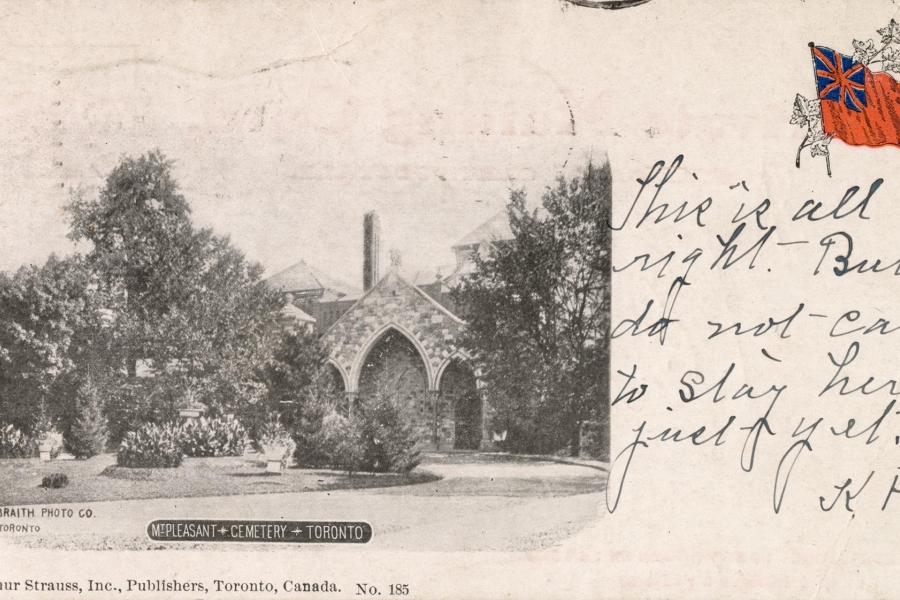 This is all
right. But
do not ca
to stay her
just yet.
K
BRAITH PHOTO CO.
TORONTO
MT PLEASANT + CEMETERY + TORONTO
ur Strauss, Inc., Publishers, Toronto, Canada. No. 185